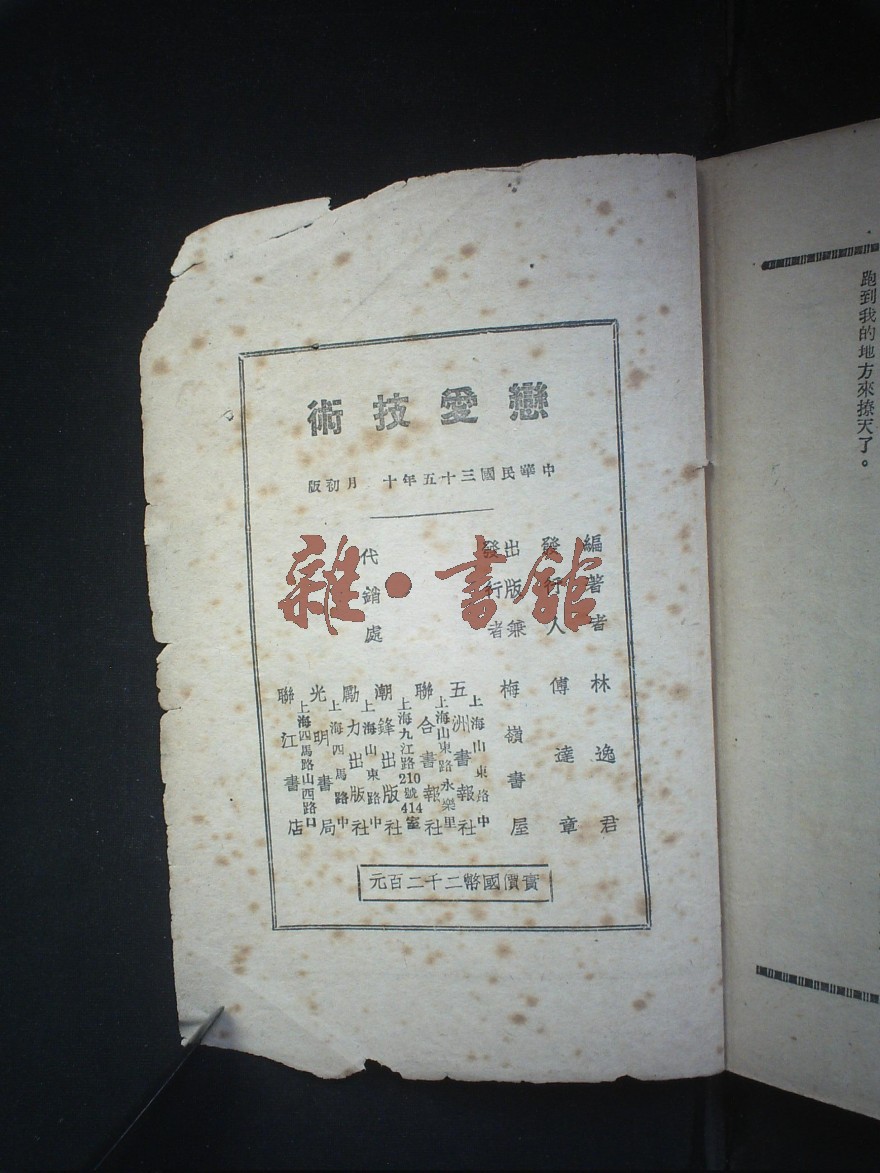 跑到我的地方來撩天了。
戀愛技術
中華民國三十五年十 月初版
編著者 林逸君
發行人 傅達章
出版兼發行者 梅嶺書屋
代銷處
上海山東路中
五洲書報社
上海山東路永樂里
聯合書報社
上海九江路210號414室
潮鋒出版社
上海山東路中
勵力出版社
上海四馬路中
光明書局
上海四馬路山西路口
聯江書店
實價國幣二千二百元
雜·書館